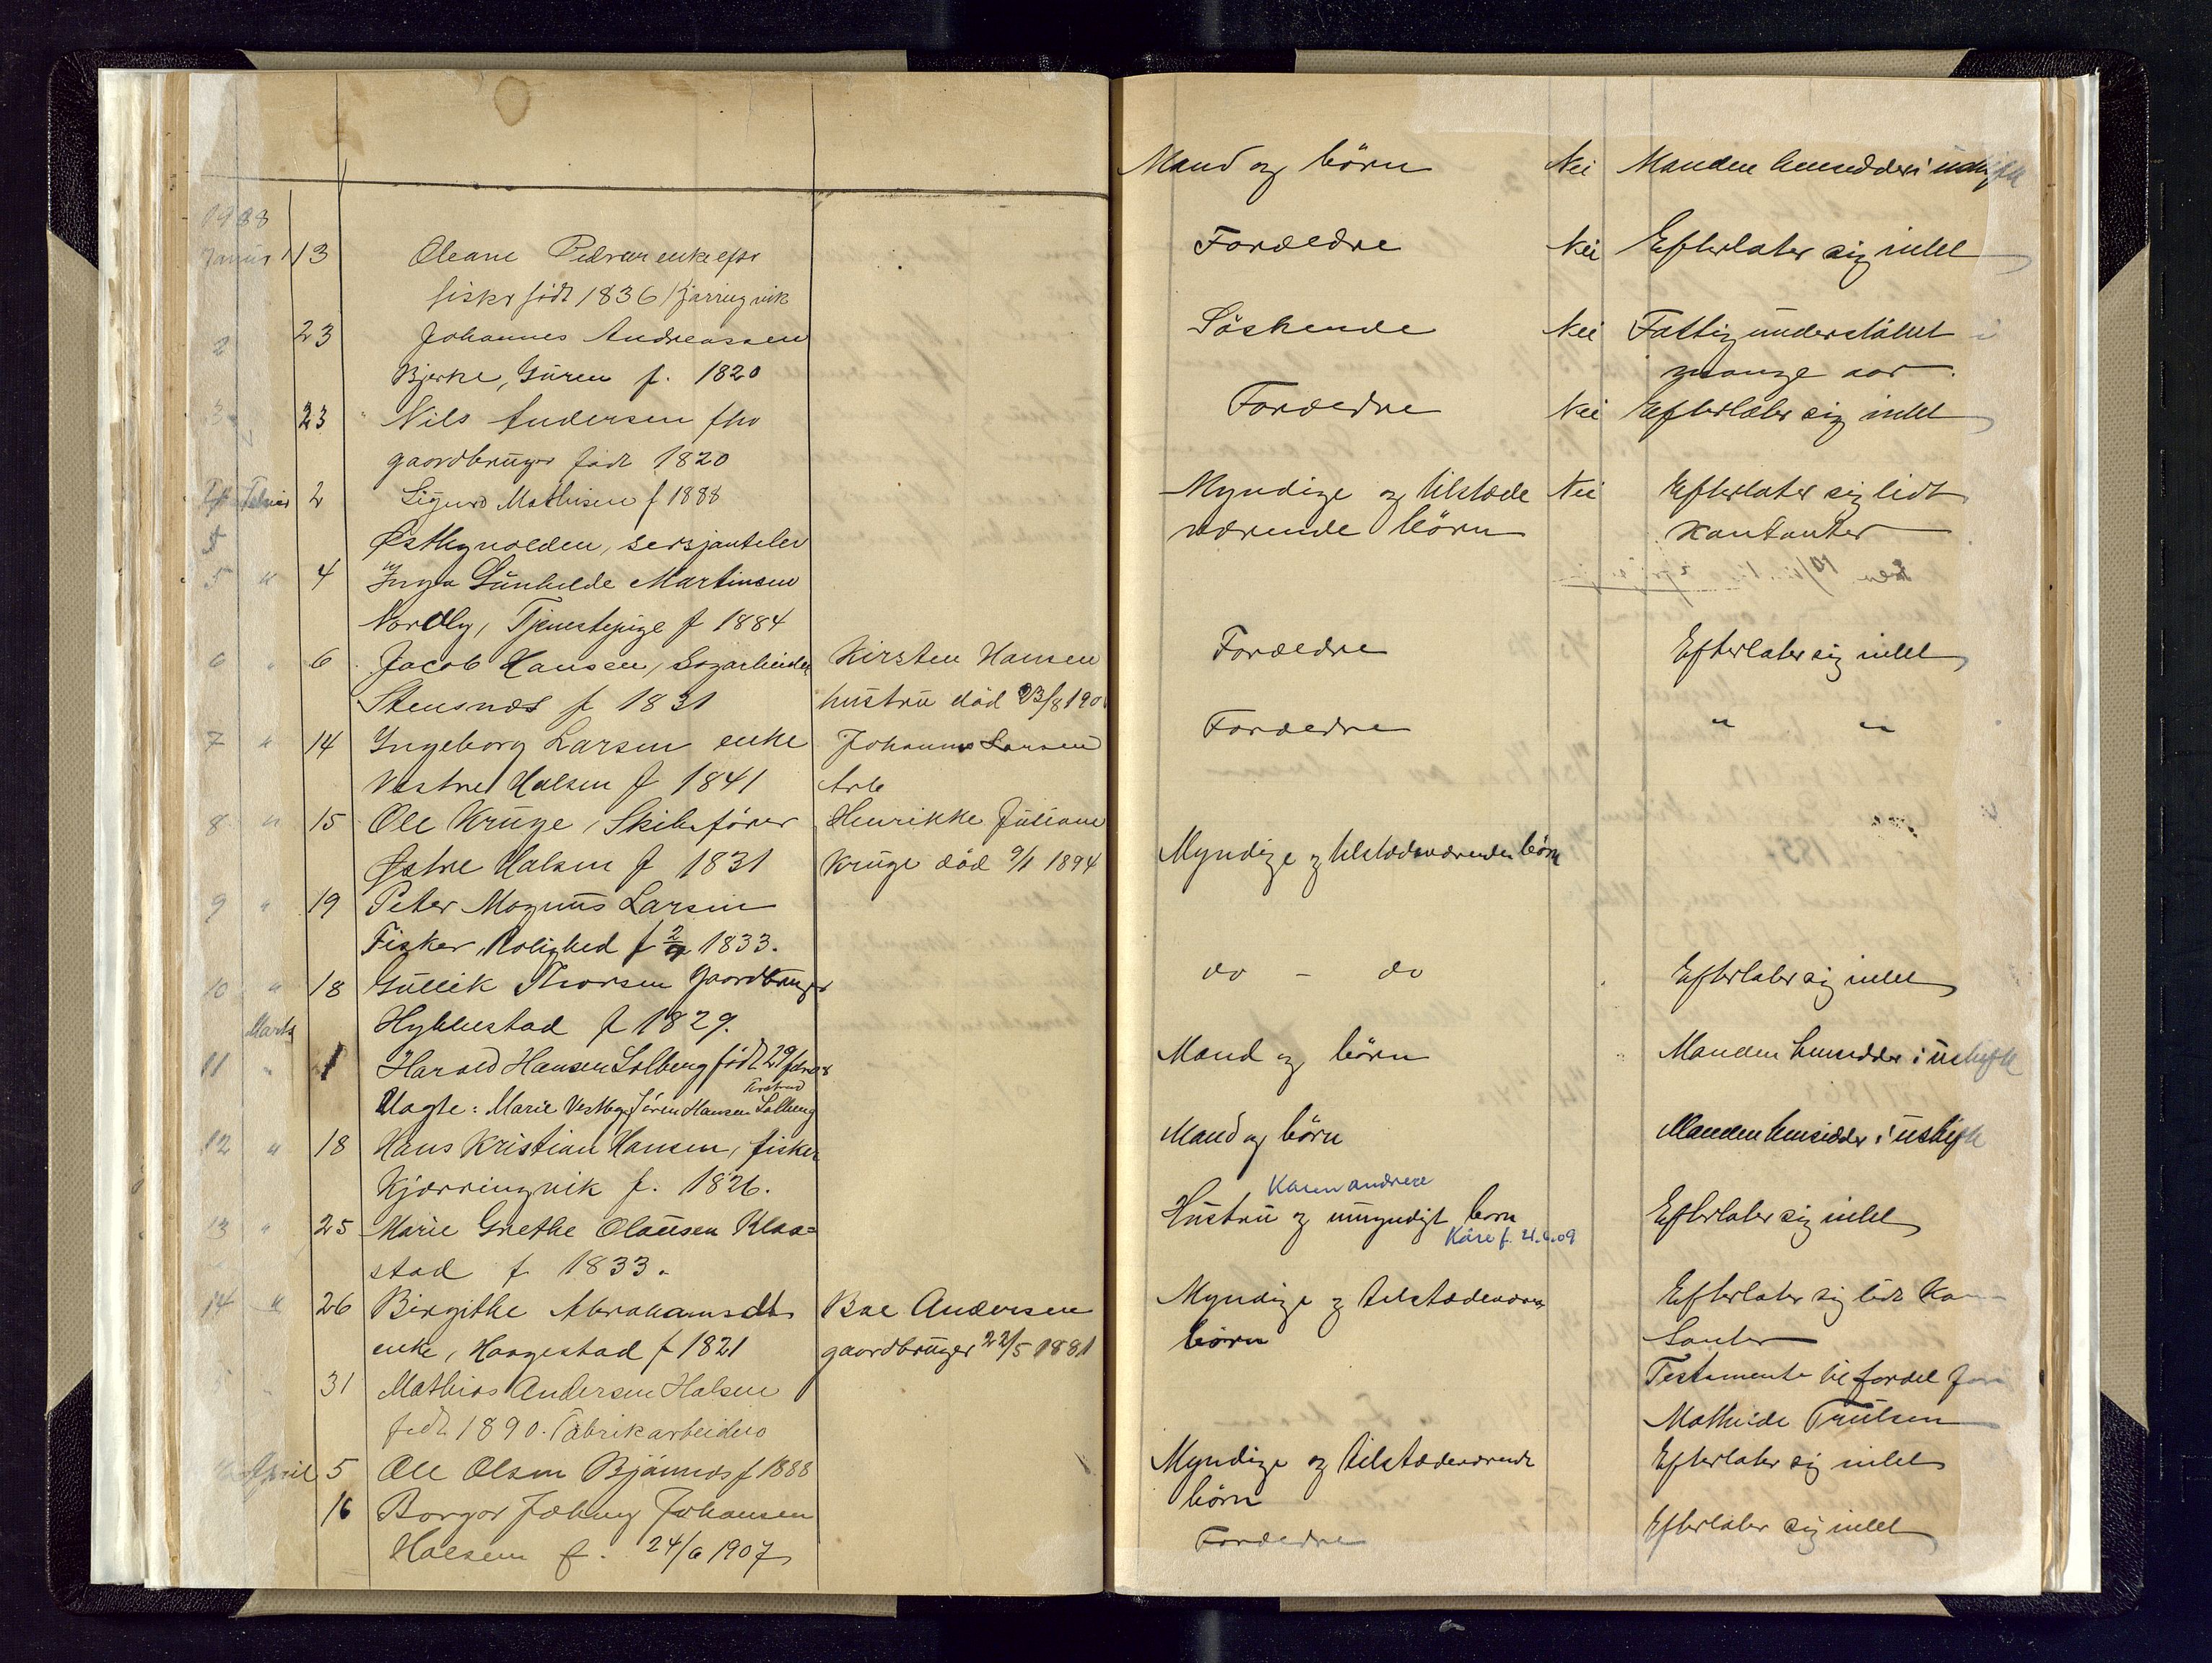 1908
Januar 13 Oleane Pedersen enke efter
fisker født 1836 Kjærringvik
2 23 Johannes Andreassen
Bjerke, Guren f. 1820
3 23 Nils Andersen
gaardbruger født 1820
Februar 2 Sigurd Mathisen f 1888
Østbynolden, sersjantelev
5 " 4 Inga Gunhilde Martinsen
Nordby, Tjenestepige f 1884
6 " 6 Jacob Hansen, Sagarbeider Kirsten Hansen
Stensnæs f 1831 hustru död 23/8 190
7 " 14 Ingeborg Larsen enke Johannes Larsen
Vestre Halsen f 1841 Arb
8 " 15 Ole Kruge, Skibsfører Henrikke Juliane
Østre Halsen f 1831 Kruge död 9/1 1894
9 " 19 Peter Magnus Larsen
Fisker, Rolighed f 1833.
10 " 18 Gullik Thorsen Gaardbruger
Marts Hybbestad f 1829.
11 " 1 Harald Hansen Solberg født 29
Uagte: Marie Vestby, Sören Hansen Solberg
12 " 18 Hans Kristian Hansen, fisker
Kjærringvik f. 1826.
13 " 25 Marie Grethe Olausen Klaa=
stad f 1833.
14 " 26 Birgithe Abrahamsdtr Boe Andersen
enke, Haagestad f 1821 gaardbruger 22/5 1881
31 Mathias Andersen Halsen
født 1890. Fabrikarbeider
April 5 Ole Olsen Bjønnes f 1888
16 Borgar Johansen
Halsen f. 24/6 1907
Mand og börn Nei Manden hensidder i uskifte
Forældre Nei Efterlater sig intet
Söskende Nei Fattigunderstöttet i
mange aar.
Forældre Nei Efterlater sig intet
Myndige og tilstede Nei Efterlater sig lidt
værende börn Kontanter
Forældre Efterlater sig intet
Forældre " "
Myndige og tilstedeværende börn
do - do Efterlater sig intet
Mand og börn Manden hensidder i uskifte
Mand og börn Manden hensidder i uskifte
Karen andrea
Hustru og umyndigt barn Efterlater sig intet
Kåre f. 21.6.09
Myndige og tilstedeværen Efterlater sig lidt Kon
börn tanter
Testamente til fordel for
Mathilde Trulsen
Myndige og tilstedeværende Efterlater sig intet
börn
Forældre Efterlater sig intet